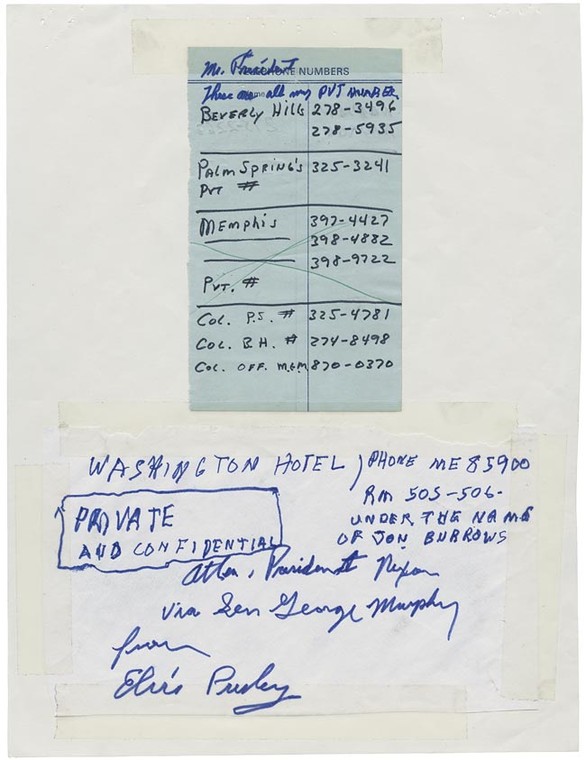 Mr. President
PHONE NUMBERS
These are all my PVT numbers
BEVERLY HILLS 278-3496
278-5935
PALM SPRING'S 325-3241
PVT #
MEMPHIS 397-4427
398-4882
398-9722
PVT. #
COL. P.S. # 325-4781
COL. B.H. # 274-8498
COL. OFF. MGM 870-0370
WASHINGTON HOTEL ) PHONE ME 85900
RM 505-506.
UNDER THE NAME
OF JON BURROWS
PRIVATE
AND CONFIDENTIAL
Attn. President Nixon
via Sen George Murphy
from
Elvis Presley